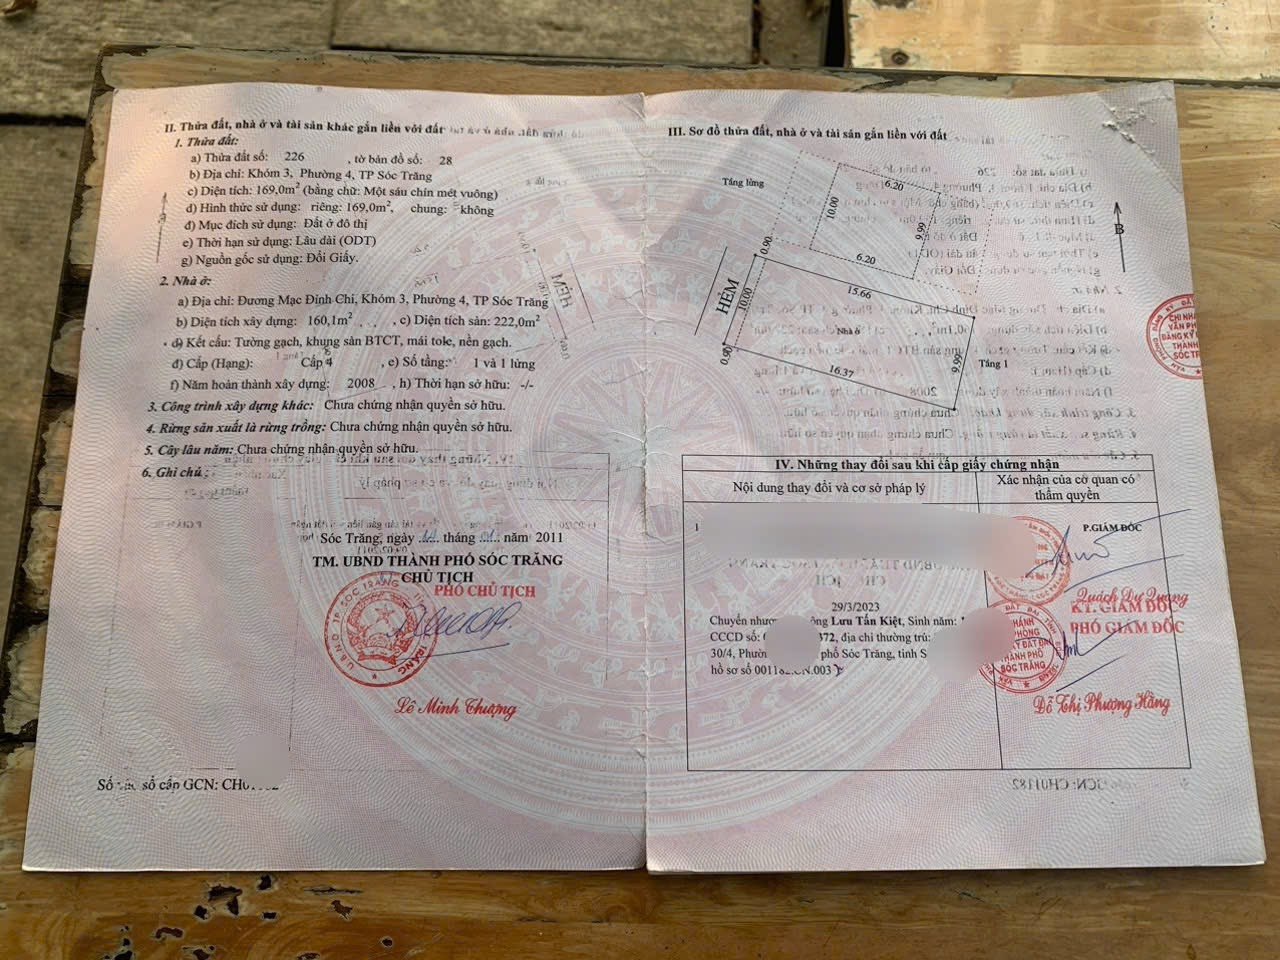 II. Thửa đất, nhà ở và tài sản khác gắn liền với đất
1. Thửa đất:
a) Thửa đất số: 226 , tờ bản đồ số: 28
b) Địa chỉ: Khóm 3, Phường 4, TP Sóc Trăng
c) Diện tích: 169,0m² (bằng chữ: Một sáu chín mét vuông)
d) Hình thức sử dụng: riêng: 169,0m², chung: không
đ) Mục đích sử dụng: Đất ở đô thị
e) Thời hạn sử dụng: Lâu dài (ODT)
g) Nguồn gốc sử dụng: Đổi Giấy.
2. Nhà ở:
a) Địa chỉ: Đương Mạc Đỉnh Chi, Khóm 3, Phường 4, TP Sóc Trăng
b) Diện tích xây dựng: 160,1m² , c) Diện tích sàn: 222,0m²
d) Kết cấu: Tường gạch, khung sàn BTCT, mái tole, nền gạch.
đ) Cấp (Hạng): Cấp 4 , e) Số tầng: 1 và 1 lửng
f) Năm hoàn thành xây dựng: 2008 , h) Thời hạn sở hữu: -/-
3. Công trình xây dựng khác: Chưa chứng nhận quyền sở hữu.
4. Rừng sản xuất là rừng trồng: Chưa chứng nhận quyền sở hữu.
5. Cây lâu năm: Chưa chứng nhận quyền sở hữu.
6. Ghi chú :
Sóc Trăng, ngày tháng năm 2011
TM. UBND THÀNH PHỐ SÓC TRĂNG
CHỦ TỊCH
PHÓ CHỦ TỊCH
U.B.N.D TP. SÓC TRĂNG
Lê Minh Thượng
Số sổ cấp GCN:
III. Sơ đồ thửa đất, nhà ở và tài sản gắn liền với đất
Tầng lửng
6.20
10.00
9.99
6.20
B
0.90
HẺM
15.66
10.00
Nhà ở
0.90
16.37
9.99
Tầng 1
IV. Những thay đổi sau khi cấp giấy chứng nhận
Nội dung thay đổi và cơ sở pháp lý
Xác nhận của cơ quan có
thẩm quyền
1
P.GIÁM ĐỐC
Quách Dự Quang
29/3/2023
Chuyển ông Lưu Tấn Kiệt, Sinh năm:
CCCD số: 372, địa chỉ thường trú:
30/4, phố Sóc Trăng, tỉnh S
hồ sơ số 001182.CN.003
KT. GIÁM ĐỐC
PHÓ GIÁM ĐỐC
Đỗ Thị Phượng Hằng
CHI NHÁNH
VĂN PHÒNG
ĐĂNG KÝ
THÀNH
SÓC TRĂNG